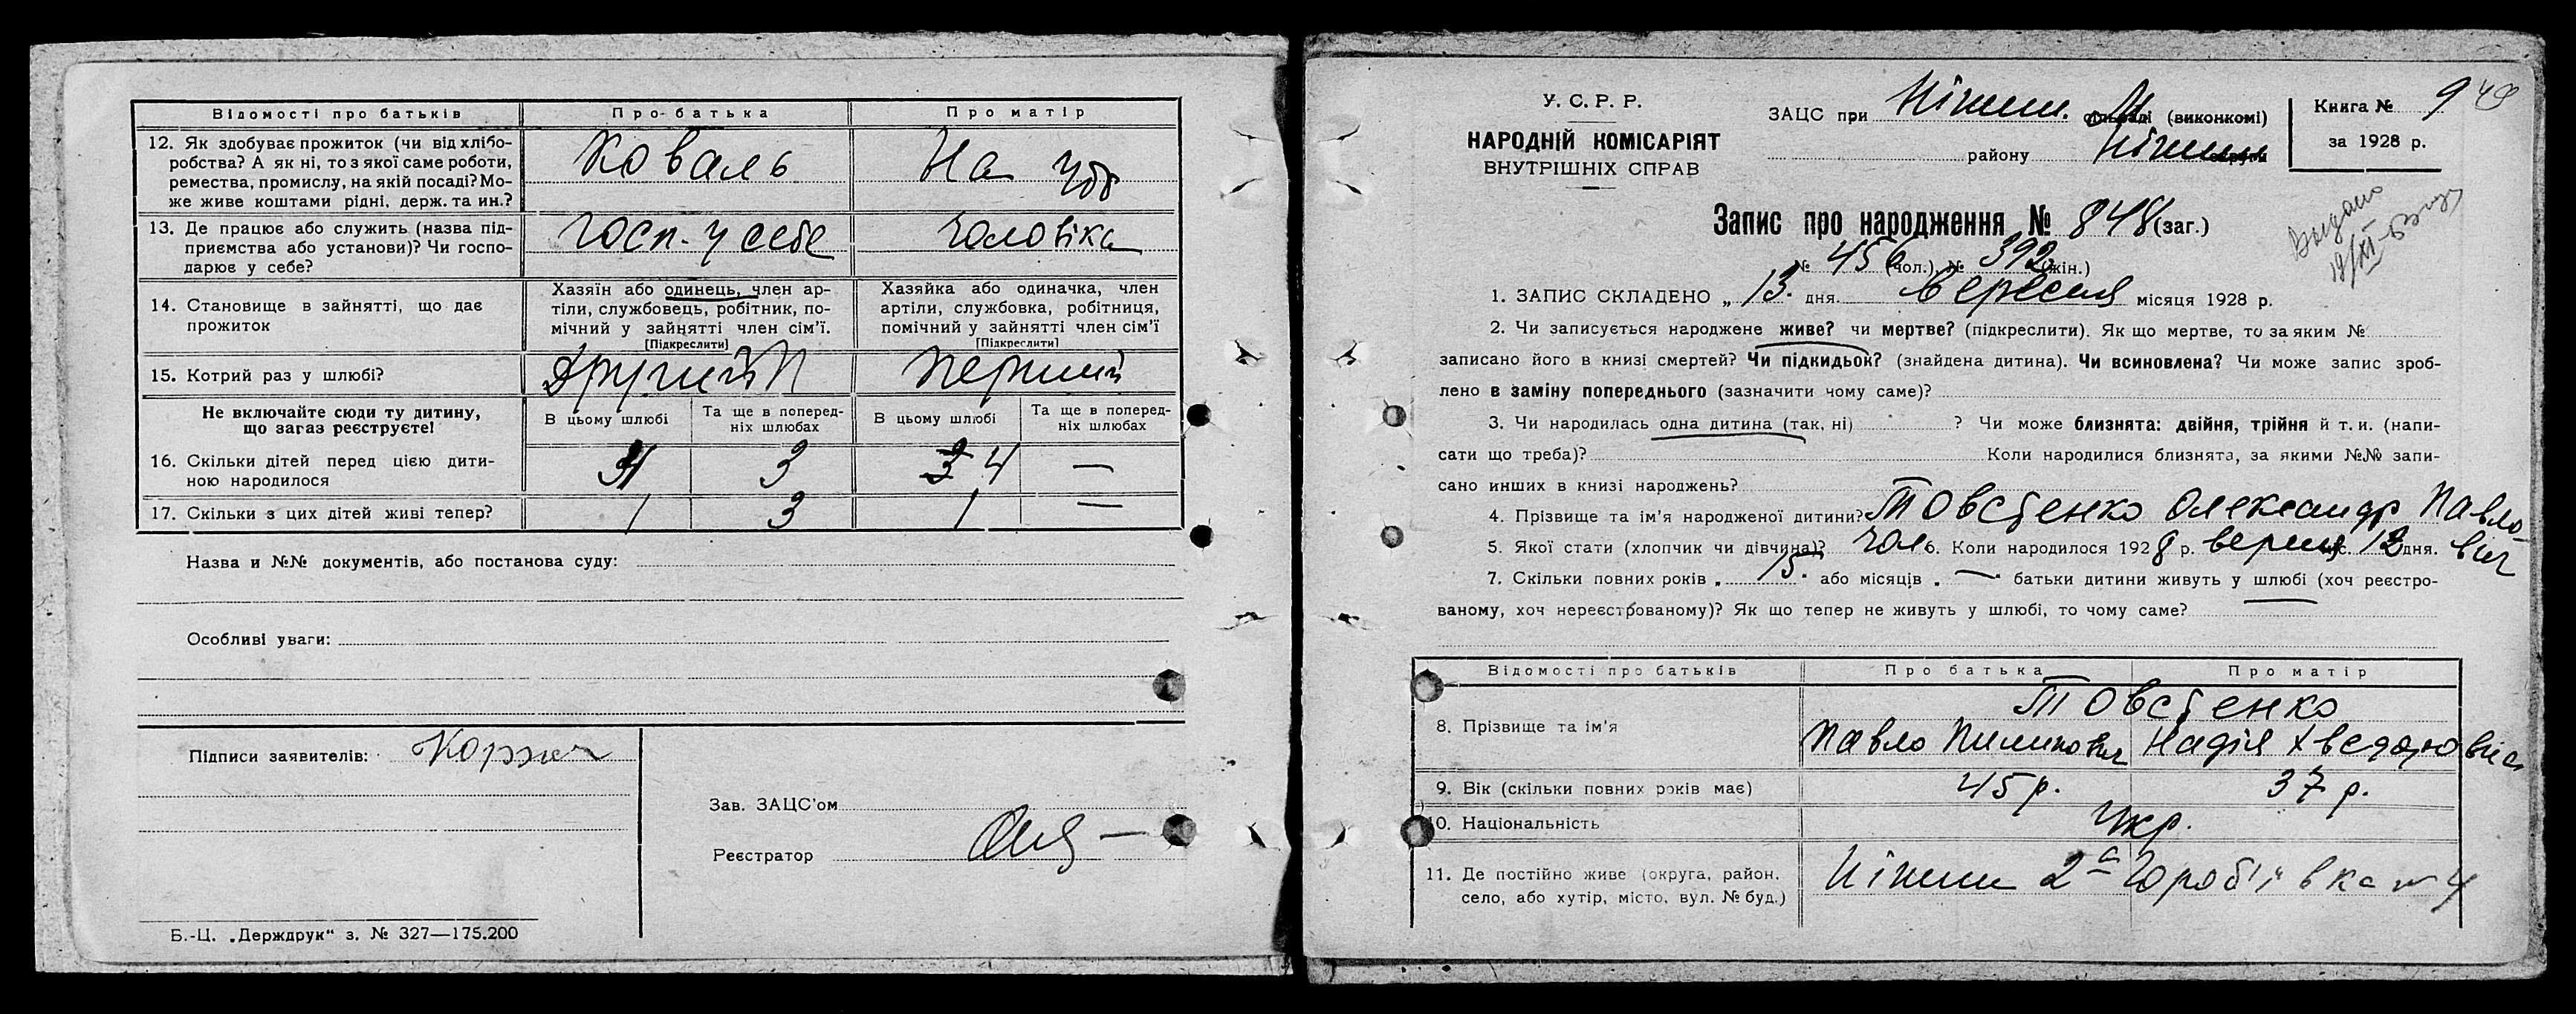 Відомості про батьків Про батька Про матір
12. Як здобуває прожиток (чи від хлібо-
робства? А як ні, то з якої саме роботи,
ремества, промислу, на якій посаді? Мо-
же живе коштами рідні, держ. та ин.?
Коваль На
13. Де працює або служить (назва під-
приємства або установи)? Чи госпо-
дарює у себе?
госп. у себе чоловіка
14. Становище в зайнятті, що дає
прожиток
Хазяїн або одинець, член ар-
тілі, службовець, робітник, по-
мічний у зайнятті член сім’ї.
[Підкреслити]
Хазяйка або одиначка, член
артілі, службовка, робітниця,
помічний у зайнятті член сім’ї
[Підкреслити]
15. Котрий раз у шлюбі? Другий перший
Не включайте сюди ту дитину,
що загаз реєструєте!
В цьому шлюбі Та ще в поперед-
ніх шлюбах В цьому шлюбі Та ще в поперед-
ніх шлюбах
16. Скільки дітей перед цією дити-
ною народилося
4 3 3 4 —
17. Скільки з цих дітей живі тепер? 1 3 1 —
Назва и №№ документів, або постанова суду:
Особливі уваги:
Підписи заявителів:
Зав. ЗАЦС’ом
Реєстратор
Б.-Ц. „Держдрук“ з. № 327—175.200
У. С. Р. Р.
НАРОДНІЙ КОМІСАРІЯТ
ВНУТРІШНІХ СПРАВ
ЗАЦС при Ніжин. сільраді (виконкомі)
району Ніжин округи
Книга № 9 49
за 1928 р.
Выдано
Запис про народження № 848 (заг.)
№ 456 (чол.), № 392 (жін.)
1. ЗАПИС СКЛАДЕНО „ 13. дня. вересня місяця 1928 р.
2. Чи записується народжене живе? чи мертве? (підкреслити). Як що мертве, то за яким №
записано його в книзі смертей? Чи підкидьок? (знайдена дитина). Чи всиновлена? Чи може запис зроб-
лено в заміну попереднього (зазначити чому саме)?
3. Чи народилась одна дитина (так, ні) ? Чи може близнята: двійня, трійня й т. и. (напи-
сати що треба)? Коли народилися близнята, за якими №№ запи-
сано инших в книзі народжень?
4. Прізвище та ім’я народженої дитини? Товстенко Олександр Павло-
вич
5. Якої стати (хлопчик чи дівчина)? чол 6. Коли народилося 1928 р. вересня 12 дня.
7. Скільки повних років „ 15. або місяців „ — “ батьки дитини живуть у шлюбі (хоч реєстро-
ваному, хоч нереєстрованому)? Як що тепер не живуть у шлюбі, то чому саме?
Відомості про батьків Про батька Про матір
8. Прізвище та ім’я
Товстенко
Павло Пилипович Надія Хведоровна
9. Вік (скільки повних років має) 45 р. 37 р.
10. Національність Укр.
11. Де постійно живе (округа, район,
село, або хутір, місто, вул. № буд.)
Ніжин 2а Горобіївка № 4